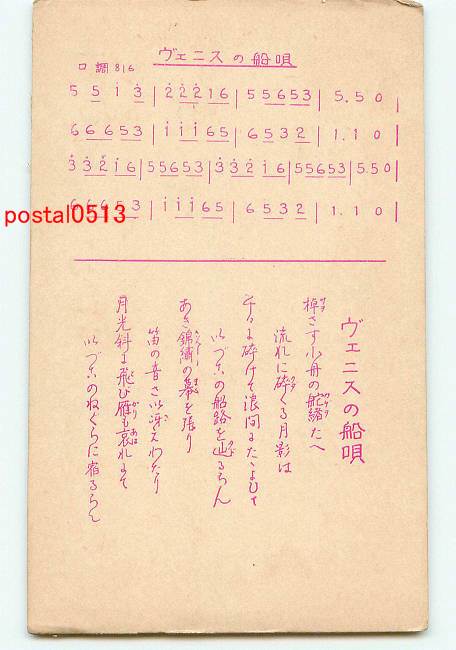 ヴェニスの船唄
ロ調 8|6
5 5 i 3̇ | 2̇ 2̇ 2̇ 1̇ 6 | 5 5 6 5 3 | 5. 5 0 |
6 6 6 5 3 | i i i 6 5 | 6 5 3 2 | 1. 1 0 |
3̇ 3̇ 2̇ i 6 | 5 5 6 5 3 | 3̇ 3̇ 2̇ i 6 | 5 5 6 5 3 | 5. 5 0
6 6 6 5 3 | i i i 6 5 | 6 5 3 2 | 1. 1 0 |
postal0513
ヴェニスの船唄
棹さす小舟の舵緒たへ
流れに砕くる月影は
千々に砕けて浪間にたゞよひ
いづこの船路を辿るらん
あき錦繍の幕を張り
笛の音さへ冴えわたり
月光斜に飛び雁も哀れにて
いづこのねぐらに宿るらん